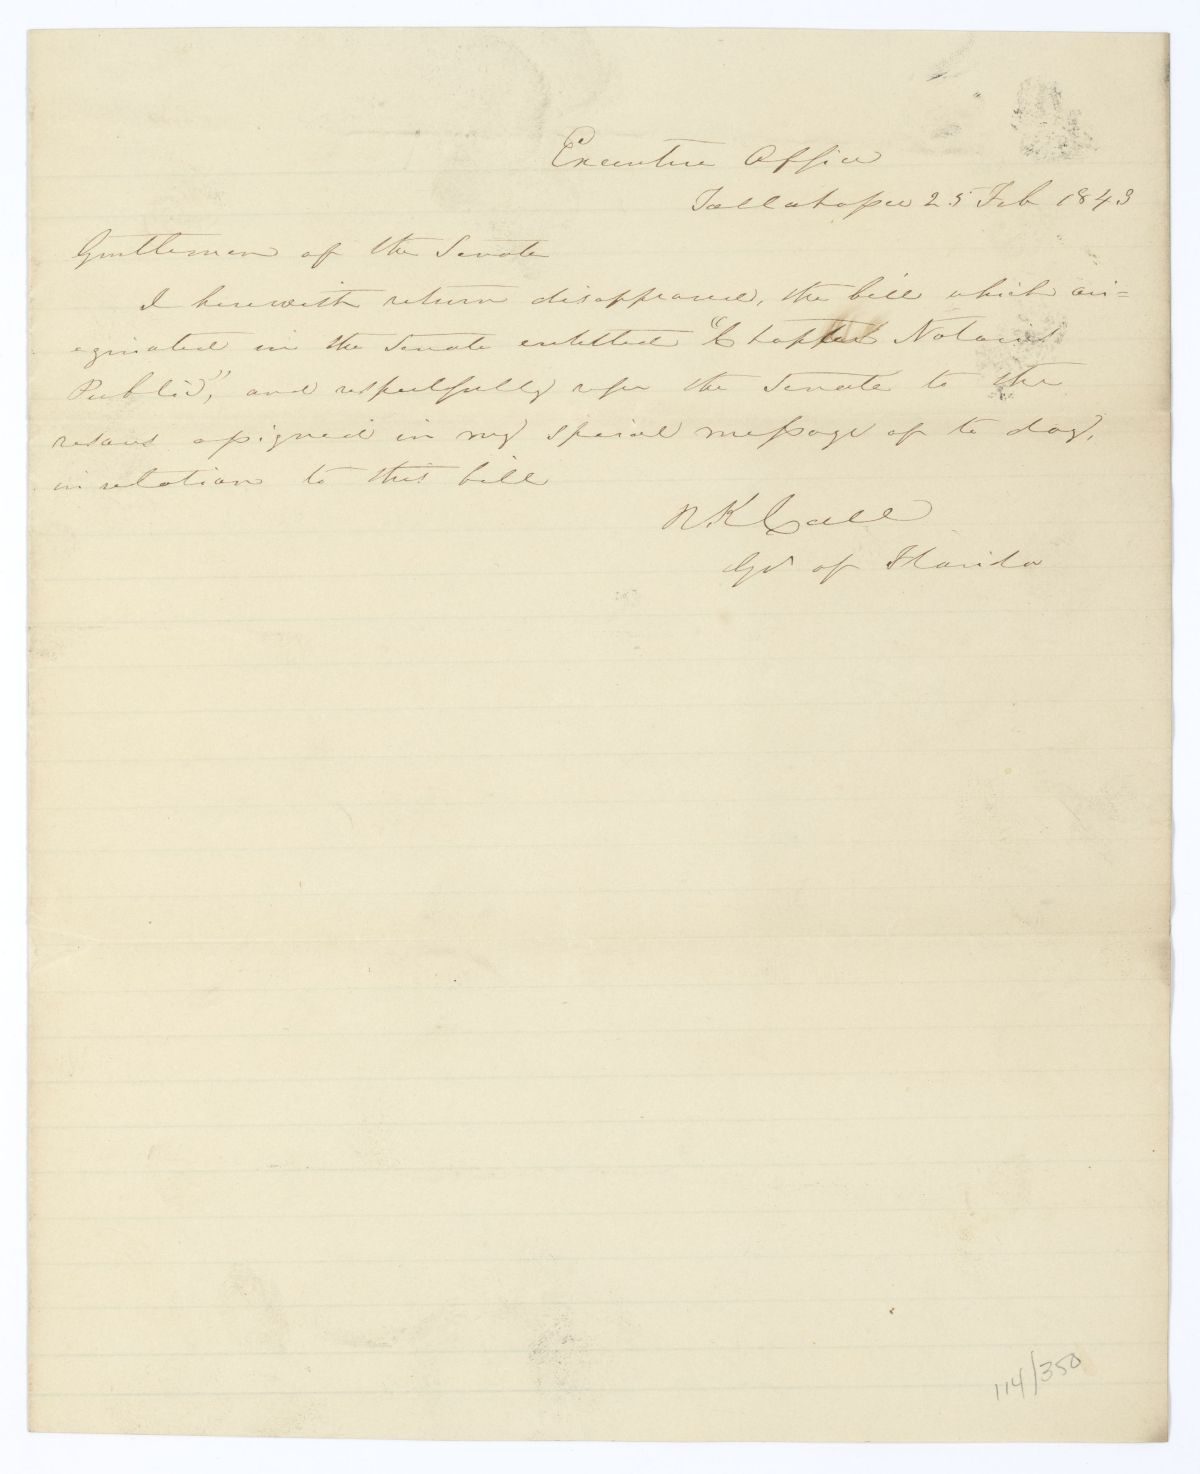 Executive Office
Tallahassee 25 Feb 1843
Gentlemen of the Senate
I herewith return disapproved, the bill which ori=
eginated in the Senate entitled "Chapter Notaries
Public", and respectfully refer the Senate to the
resons assigned in my special message of to day,
in relation to this bill
R. K. Call
Gov of Florida
114/350